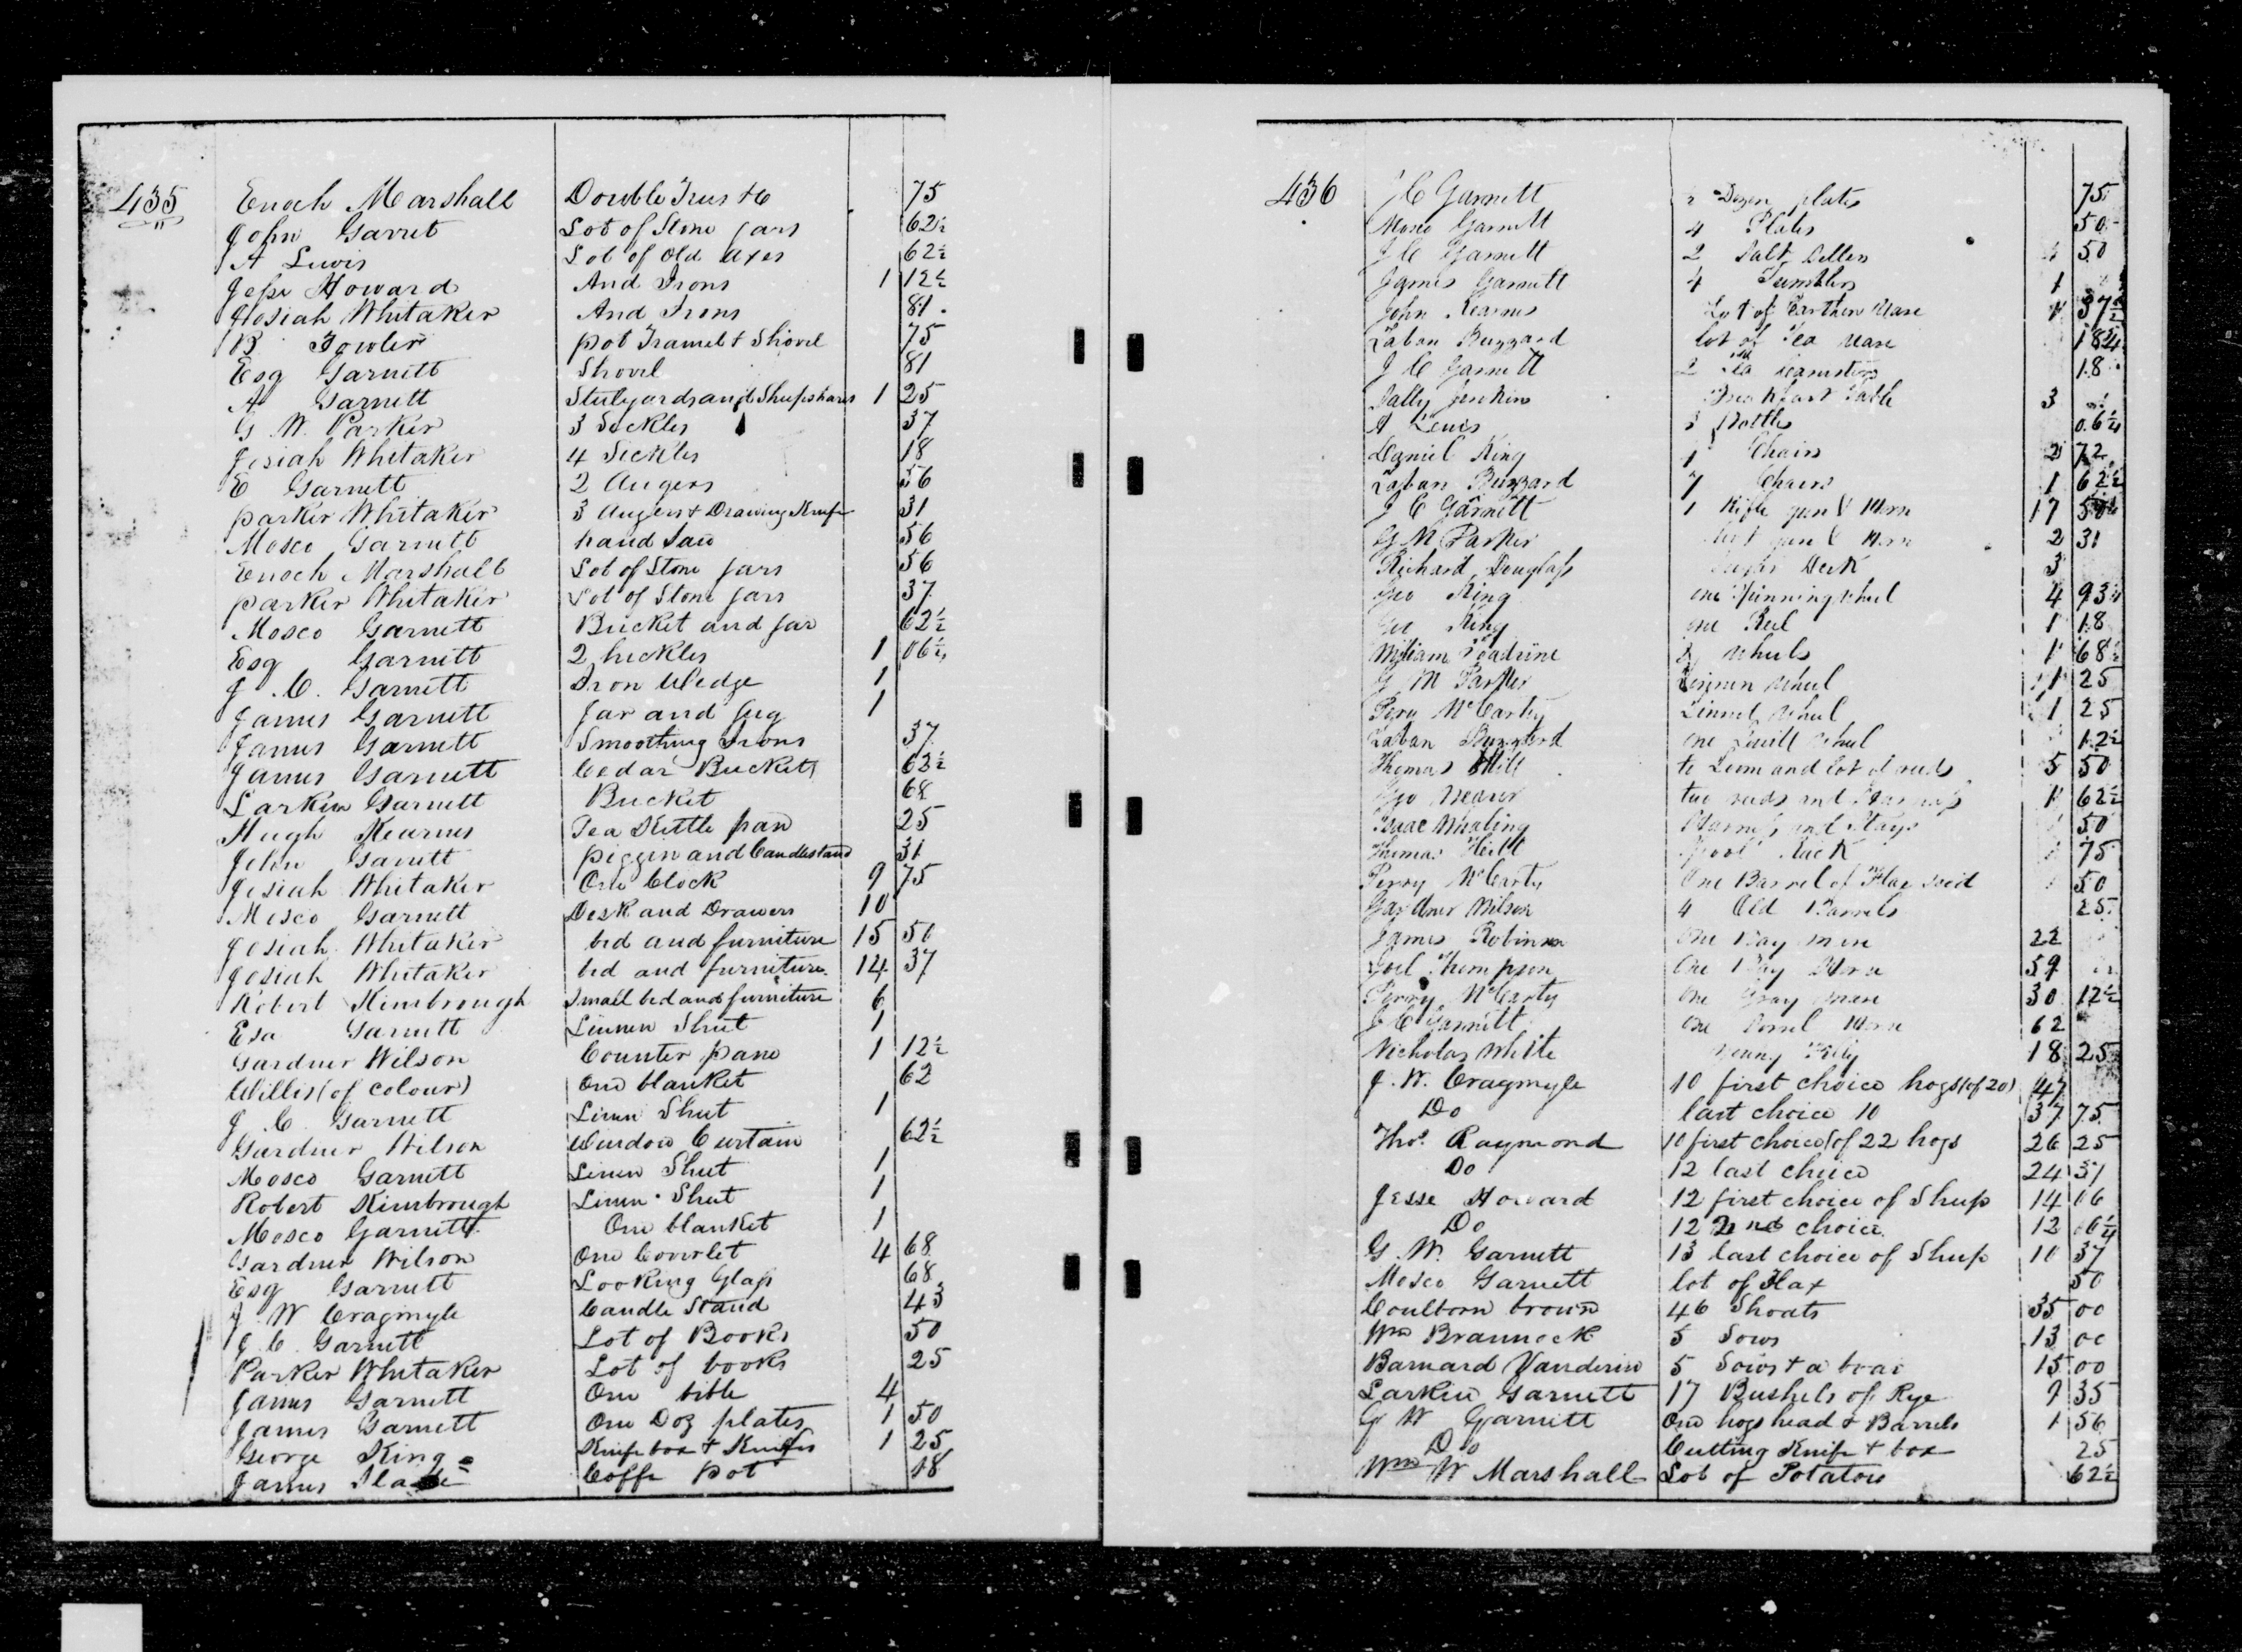 435 Enoch Marshall Double Trees &c 75
John Garret Lot of Stone Jars 62½
A Lewis Lot of Old Axes 62½
Jesse Howard And Irons 1 12½
Josiah Whitaker And Irons 81
B Fowler pot Tramel & Shovel 75
Esq Garnett Shovel 81
A Garnett Stulyards and Shupshares 1 25
G. W. Parker 3 Sickles 37
Josiah Whitaker 4 Sickles 18
E Garnett 2 Augers 56
Parker Whitaker 3 Augers & Drawing Knife 31
Mosco Garnett hand Saw 56
Enoch Marshall Lot of Stone Jars 56
Parker Whitaker Lot of Stone Jars 37
Mosco Garnett Bucket and Jar 62½
Esq Garnett 2 heckles 1 06¼
J. C. Garnett Iron Wedge 1
James Garnett Jar and Jug 1
James Garnett Smoothing Irons 37
James Garnett Cedar Buckets 62½
Larkin Garnett Bucket 68
Hugh Kearnes Tea Kettle pan 25
John Garnett piggin and Candlestand 31
Josiah Whitaker One Clock 9 75
Mosco Garnett Desk and Drawers 10
Josiah Whitaker bed and furniture 15 50
Josiah Whitaker bed and furniture 14 37
Robert Kimbrough Small bed and furniture 6
Esq Garnett Linnen Sheet 1
Gardner Wilson Counter pane 1 12½
Willis (of colour) One blanket 62
J. C. Garnett Linen Sheet 1
Gardner Wilson Window Curtain 62½
Mosco Garnett Linen Sheet 1
Robert Kimbrough Linen Sheet 1
Mosco Garnett One blanket 1
Gardner Wilson One Coverlet 4 68
Esq Garnett Looking Glass 68
J. W Cragmyle Candle Stand 43
J. C. Garnett Lot of Books 50
Parker Whitaker Lot of books 25
James Garnett One bible 4
James Garnett One Doz plates 1 50
George King Knife box & Knifes 1 25
James Coffe pot 18
436 J C Garnett Dozen plates 75
Mosco Garnett 4 Plates 50
J C Garnett 2 Salt 50
James Garnett 4 Tumblers 1
John Kearnes Lot of Earthen Ware 37½
Laban Buzzard lot of Tea Ware 18¾
J C Garnett 2 Tea Canisters 18
Sally Jenkins Breakfast Table 3
A Lewis 3 Bottles 06¼
Daniel King Chairs 2 72
Laban Buzzard 7 Chairs 1 62½
J C Garnett 1 Rifle gun & Horn 17
G M Parker gun & Horn 2 31
Richard Douglass Desk 3
Geo King one Spinning wheel 4 93¾
Geo King one Reel 1 18
William wheels 1 68½
G M Parker Linnen Wheel 1 25
Perry McCarty Linnel Wheel 1 25
Laban Buzzard one Quill Wheel 12½
Thomas Hill Loom and lot of reeds 5 50
Geo two reeds and Harness 1 62½
Isaac Whaling Harness and Stays 50
Thomas Hill Spool Rack 75
Perry McCarty One Barrel of Flax seed 50
Gardner Wilson 4 Old Barrels 25
James Robinson One Bay mare 22
Joel Thompson One Bay Horse 59
Perry McCarty One Gray mare 30 12½
J C Garnett One Sorrel Horse 62
Nicholas White Young Filly 18 25
J. W. Cragmyle 10 first choice hogs (of 20) 47
Do last choice 10 37 75
Thos. Raymond 10 first choice (of 22 hogs 26 25
Do 12 last choice 24 31
Jesse Howard 12 first choice of Sheep 14 06
Do 12 2nd choice 12 06¼
G. W. Garnett 13 last choice of Sheep 10 37
Mosco Garnett lot of Flax 50
Coulborn brown 46 Shoats 35 00
Wm Brannock 5 Sows 13 00
Barnard Vanderin 5 Sows & a boar 15 00
Larkin Garnett 17 Bushels of Rye 9 35
G W Garnett One hogshead & Barrels 1 56
Do Cutting Knife & box 25
Wm W Marshall Lot of Potatoes 62½